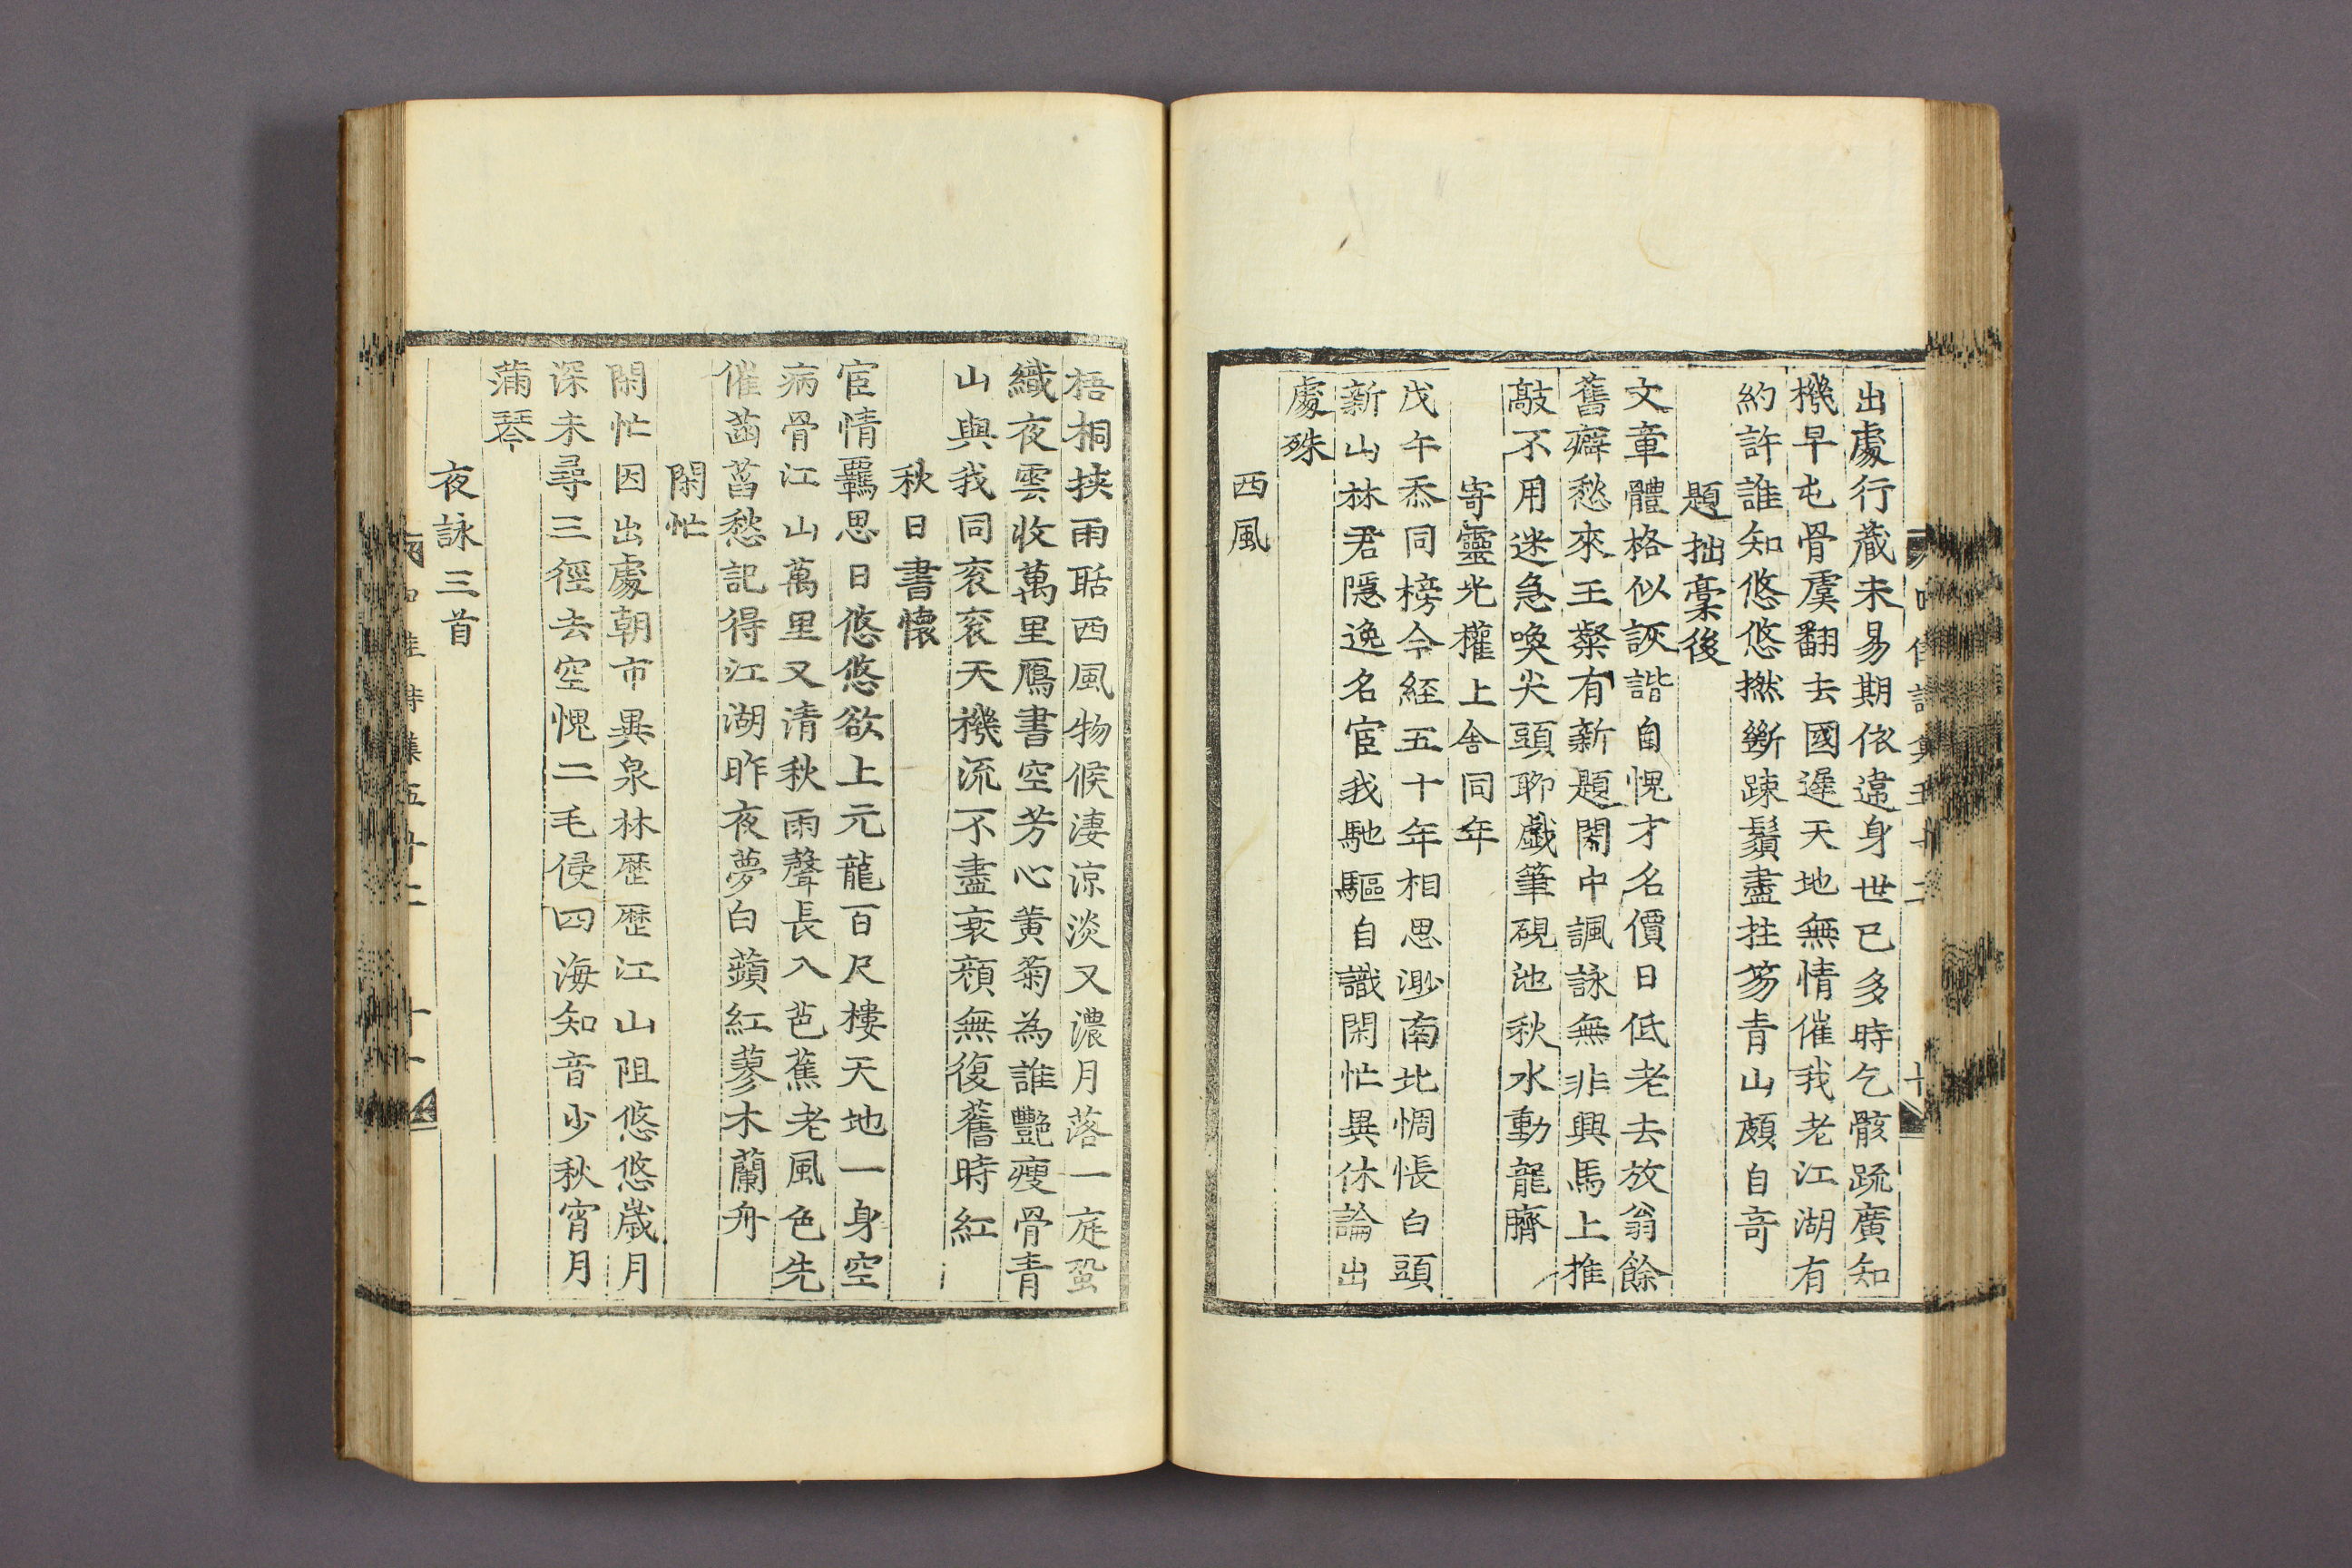 出處行藏未易期依違身世已多時乞骸疏廣知
機早屯骨虞翻去國遲天地無情催我老江湖有
約許誰知悠悠撚斷踈鬚盡拄笏青山頗自奇
題拙藁後
文章體格似詼諧自愧才名價日低老去放翁餘
舊癖愁來王粲有新題閑中諷詠無非興馬上推
敲不用迷急喚尖頭聊戱筆硯池秋水動龍臍
寄靈光權上舍同年
戊午忝同榜今経五十年相思渺南北惆悵白頭
新山林君隱逸名宦我馳驅自識閑忙異休論出
處殊
西風
梧桐挟雨聒西風物候淒涼淡又濃月落一庭蛩
織夜雲收萬里鴈書空芳心黄菊為誰艶瘦骨青
山與我同衮衮天機流不盡衰顔無復舊時紅
秋日書懷
宦情羈思日悠悠欲上元龍百尺樓天地一身空
病骨江山萬里又清秋雨聲長入芭蕉老風色先
催菡萏愁記得江湖昨夜夢白蘋紅蓼木蘭舟
閑忙
閑忙因出處朝市異泉林歷歷江山阻悠悠歲月
深未尋三徑去空愧二毛侵四海知音少秋宵月
滿琴
夜詠三首